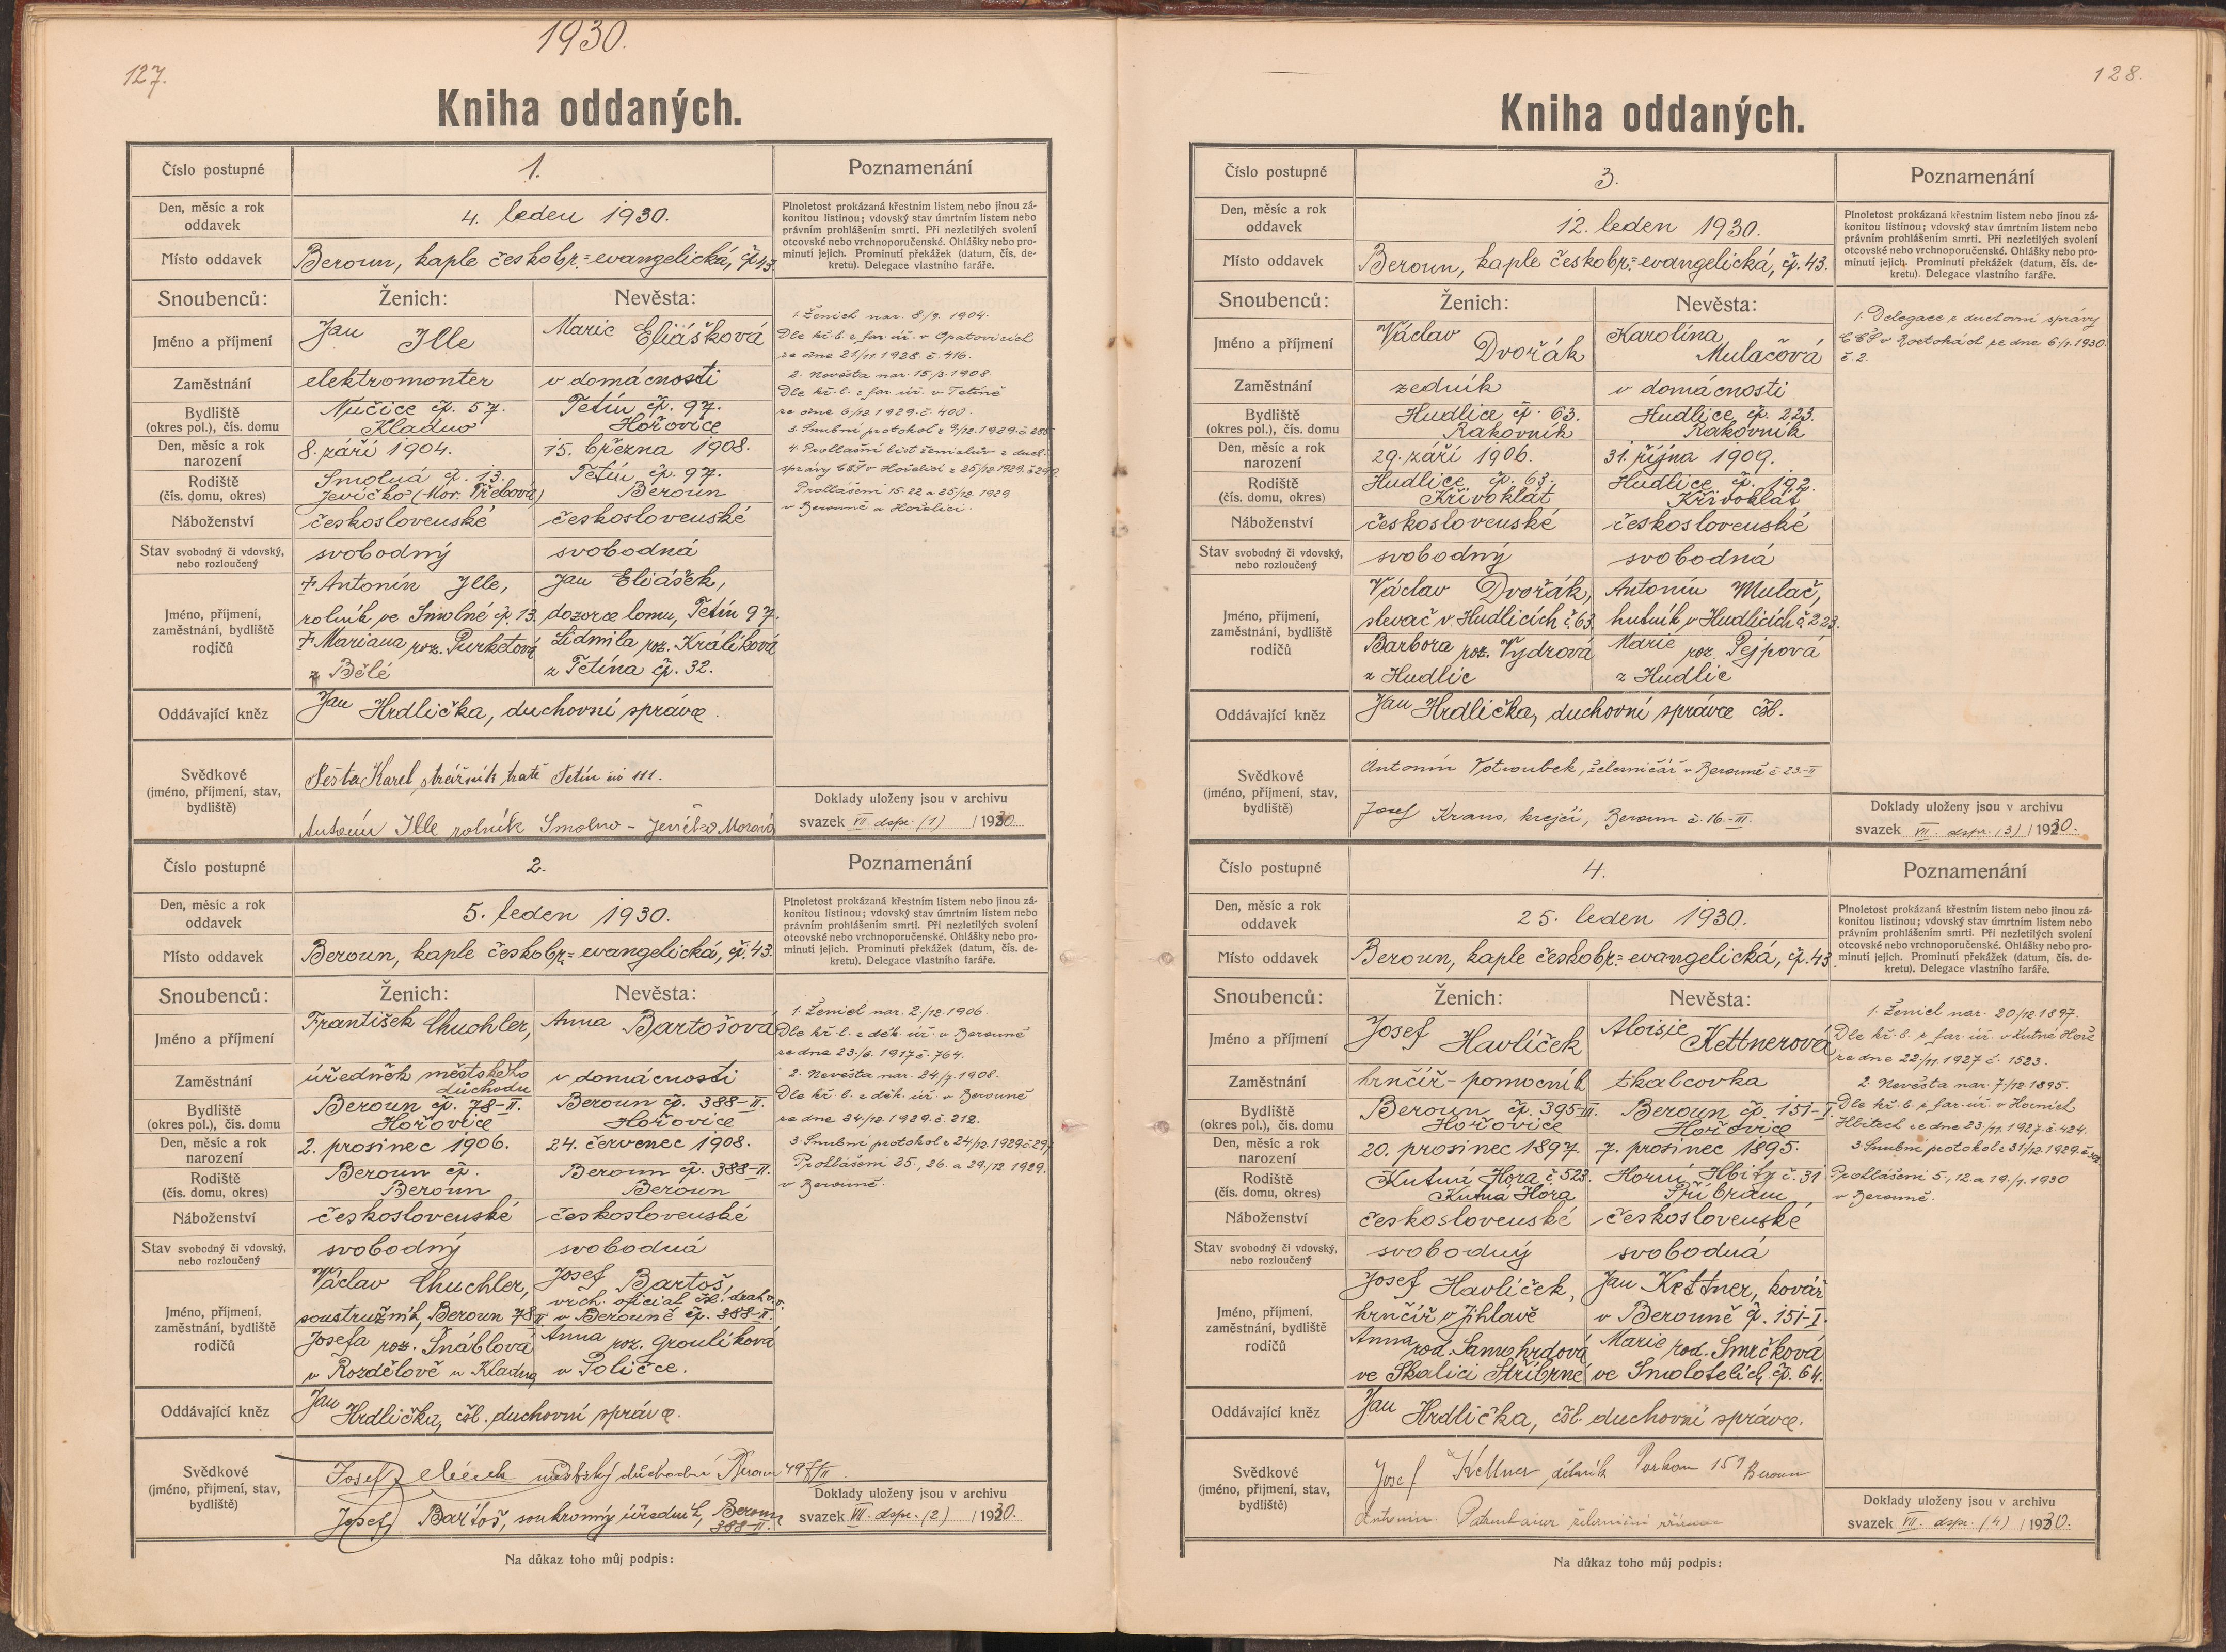 1930.
127.
Kniha oddaných.
Číslo postupné
1.
Poznamenání
Den, měsíc a rok
oddavek
4. leden 1930.
Plnoletost prokázaná křestním listem nebo jinou zá-
konitou listinou; vdovský stav úmrtním listem nebo
právním prohlášením smrti. Při nezletilých svolení
otcovské nebo vrchnoporučenské. Ohlášky nebo pro-
minutí jejich. Prominutí překážek (datum, čís. de-
kretu). Delegace vlastního faráře.
Místo oddavek
Beroun, kaple českobr.=evangelická, čp. 43.
Snoubenců:
Ženich:
Nevěsta:
Jméno a příjmení
Jan Ille
Marie Eliášková
Zaměstnání
elektromonter
v domácnosti
Bydliště
(okres pol.), čís. domu
Nučice čp. 57.
Kladno
Tetín čp. 97.
Hořovice
Den, měsíc a rok
narození
8. září 1904.
15. března 1908.
Rodiště
(čís. domu, okres)
Smolná čp. 13.
Jevíčko (Mor. Třebová)
Tetín čp. 97.
Beroun
Náboženství
československé
československé
Stav svobodný či vdovský,
nebo rozloučený
svobodný
svobodná
Jméno, příjmení,
zaměstnání, bydliště
rodičů
† Antonín Ille,
rolník ve Smolné čp. 13.
† Mariana roz. Purketová
z Bělé
Jan Eliášek,
dozorce lomu, Tetín 97.
Lidmila roz. Králíková
z Tetína čp. 32.
Oddávající kněz
Jan Hrdlička, duchovní správce.
Svědkové
(jméno, příjmení, stav,
bydliště)
Šesta Karel, strážník tratě Tetín 111.
Antonín Ille rolník Smolno - Jevíčko Morava
1. Ženich nar. 8/9. 1904.
Dle kř. l. z far. úř. v Opatovicích
ze dne 21/11.1928. č. 416.
2. Nevěsta nar. 15/3.1908.
Dle kř. l. z far. úř. v Tetíně
ze dne 6/12 1929. č. 400.
3. Snubní protokol z 9/12.1929. č 285
4. Prohlašní list ženichův z duch.
správy CČS v Hořelici z 25/12 1929. č 299.
Prohlášeni 15. 22 a 25/12. 1929
v Berouně a Hořelici.
Doklady uloženy jsou v archivu
svazek VII. dspr. (1) / 1930.
Číslo postupné
2.
Poznamenání
Den, měsíc a rok
oddavek
5. leden 1930.
Plnoletost prokázaná křestním listem nebo jinou zá-
konitou listinou; vdovský stav úmrtním listem nebo
právním prohlášením smrti. Při nezletilých svolení
otcovské nebo vrchnoporučenské. Ohlášky nebo pro-
minutí jejich. Prominutí překážek (datum, čís. de-
kretu). Delegace vlastního faráře.
Místo oddavek
Beroun, kaple českobr.=evangelická, čp. 43.
Snoubenců:
Ženich:
Nevěsta:
Jméno a příjmení
František Chuchler,
Anna Bartošová
Zaměstnání
úředník městského
důchodu
v domácnosti
Bydliště
(okres pol.), čís. domu
Beroun čp. 78-II.
Hořovice
Beroun čp. 388-II.
Hořovice
Den, měsíc a rok
narození
2. prosinec 1906.
24. červenec 1908.
Rodiště
(čís. domu, okres)
Beroun čp.
Beroun
Beroun čp. 388-II.
Beroun
Náboženství
československé
československé
Stav svobodný či vdovský,
nebo rozloučený
svobodný
svobodná
Jméno, příjmení,
zaměstnání, bydliště
rodičů
Václav Chuchler,
soustružník, Beroun 78 II.
Josefa roz. Šnáblová
v Rozdělově u Kladna
Josef Bartoš,
vrch. oficial čsl. drah v. v.
v Berouně čp. 388-II.
Anna roz. Groulíková
v Poličce.
Oddávající kněz
Jan Hrdlička, čsl. duchovní správce.
Svědkové
(jméno, příjmení, stav,
bydliště)
Josef městský důchodní Beroun
Josef Bartoš, soukromý úředník, Beroun
388-II.
1. Ženich nar. 2/12.1906.
Dle kř. l. z děk. úř. v Berouně
ze dne 23./6. 1917 č. 764.
2. Nevěsta nar. 24/7.1908.
Dle kř. l. z děk. úř. v Berouně
ze dne 24/12.1929. č. 212.
3. Snubní protokol z 24/12.1929 č. 297
Prohlášeni 25., 26. a 29./12. 1929.
v Berouně.
Doklady uloženy jsou v archivu
svazek VII. dspr. (2) / 1930.
Na důkaz toho můj podpis:
128.
Kniha oddaných.
Číslo postupné
3.
Poznamenání
Den, měsíc a rok
oddavek
12. leden 1930.
Plnoletost prokázaná křestním listem nebo jinou zá-
konitou listinou; vdovský stav úmrtním listem nebo
právním prohlášením smrti. Při nezletilých svolení
otcovské nebo vrchnoporučenské. Ohlášky nebo pro-
minutí jejich. Prominutí překážek (datum, čís. de-
kretu). Delegace vlastního faráře.
Místo oddavek
Beroun, kaple českobr.=evangelická, čp. 43.
Snoubenců:
Ženich:
Nevěsta:
Jméno a příjmení
Václav Dvořák
Karolína Mulačová
Zaměstnání
zedník
v domácnosti
Bydliště
(okres pol.), čís. domu
Hudlice čp. 63.
Rakovník
Hudlice čp. 223.
Rakovník
Den, měsíc a rok
narození
29. září 1906.
31. října 1909.
Rodiště
(čís. domu, okres)
Hudlice čp. 63.
Křivoklát
Hudlice čp. 192.
Křivoklát
Náboženství
československé
československé
Stav svobodný či vdovský,
nebo rozloučený
svobodný
svobodná
Jméno, příjmení,
zaměstnání, bydliště
rodičů
Václav Dvořák,
slevač v Hudlicích č. 63.
Barbora roz. Vydrová
z Hudlic
Antonín Mulač,
hutník v Hudlicích č. 223.
Marie roz. Pejpová
z Hudlic
Oddávající kněz
Jan Hrdlička, duchovní správce čsl.
Svědkové
(jméno, příjmení, stav,
bydliště)
Antonín Votroubek, železničář v Berouně č 23-II
Josef Kraus, krejčí, Beroun č. 16.-III.
1. Delegace z duchovní správy
CČS v Roztokách ze dne 6/1.1930.
č. 2.
Doklady uloženy jsou v archivu
svazek VII. dspr. (3) / 1930.
Číslo postupné
4.
Poznamenání
Den, měsíc a rok
oddavek
25. leden 1930.
Plnoletost prokázaná křestním listem nebo jinou zá-
konitou listinou; vdovský stav úmrtním listem nebo
právním prohlášením smrti. Při nezletilých svolení
otcovské nebo vrchnoporučenské. Ohlášky nebo pro-
minutí jejich. Prominutí překážek (datum, čís. de-
kretu). Delegace vlastního faráře.
Místo oddavek
Beroun, kaple českobr.=evangelická, čp. 43.
Snoubenců:
Ženich:
Nevěsta:
Jméno a příjmení
Josef Havlíček
Aloisie Kettnerová
Zaměstnání
hrnčíř-pomocník
tkalcovka
Bydliště
(okres pol.), čís. domu
Beroun čp. 395-III.
Hořovice
Beroun čp. 151-I.
Hořovice
Den, měsíc a rok
narození
20. prosinec 1897.
7. prosinec 1895.
Rodiště
(čís. domu, okres)
Kutná Hora č 523.
Kutná Hora
Horní Hbity č. 31.
Příbram
Náboženství
československé
československé
Stav svobodný či vdovský,
nebo rozloučený
svobodný
svobodná
Jméno, příjmení,
zaměstnání, bydliště
rodičů
Josef Havlíček,
hrnčíř v Jihlavě
Anna rod. Samohrdová
ve Skalici Stříbrné
Jan Kettner, kovář
v Berouně čp. 151-I.
Marie rod. Smrčková
ve Smolotelích čp. 64.
Oddávající kněz
Jan Hrdlička, čsl. duchovní správce.
Svědkové
(jméno, příjmení, stav,
bydliště)
Josef Kettner, dělník 151 Beroun
Antonín železniční
1. Ženich nar. 20/12.1897.
Dle kř. l. z far. úř. v Kutné Hoře
ze dne 22/11.1927 č. 1523.
2. Nevěsta nar. 7/12.1895.
Dle kř. l. z far. úř. v Horních
Hbitech ze dne 23/11.1927. č 424.
3. Snubní protokol z 31/12.1929. č.
Prohlášeni 5., 12. a 19./1. 1930
v Berouně.
Doklady uloženy jsou v archivu
svazek VII. dspr. (4) / 1930.
Na důkaz toho můj podpis: